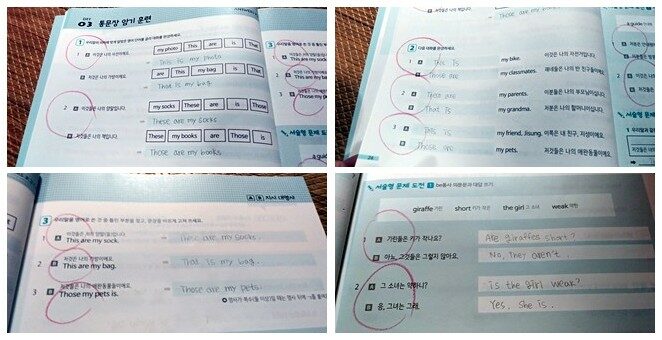 DAY
03 통문장 암기 훈련
1
1 A 이것은 나의 사진이에요.
my photo This are is That
→ This is my photo
B 저것은 나의 가방이에요.
are This my bag is That
→ That is my bag
2 A 이것들은 나의 양말입니다.
my socks These are is Those
→ These are my socks
B 저것들은 나의 책입니다.
These my books are Those is
→ Those are my books
3
This are my
Those my
a gui
Those are my
2 다음 대화를 완성하세요.
1 A This is my bike. 이것은 나의 자전거입니다.
B Those are my classmates. 쟤네들은 나의 반 친구들이에요.
2 A These are my parents. 이분들은 나의 부모님이에요.
B That is my grandma. 저분은 나의 할머니이십니다.
3 A This is my friend, Jisung. 이쪽은 내 친구, 지성이에요.
B Those are my pets. 저것들은 나의 애완동물들이에요.
a guide
서술형 문제
A B 지시 대명사
3 우리말을 영어로 쓴 것 중 틀린 부분을 찾고, 문장을 바르게 고쳐 쓰세요.
1 A 이것들은 나의 양말(들)입니다.
This are my sock. → These are my socks.
2 B 저것은 나의 가방이에요.
This are my bag. → That is my bag.
3 B 저것들은 나의 애완동물들이에요.
Those my pets is. → Those are my pets.
서술형 문제 도전 1 be동사 의문문과 대답 쓰기
giraffe 기린 short 키가 작은 the girl 그 소녀 weak 약한
1 A 기린들은 키가 작나요? Are giraffes short?
B 아뇨, 그것들은 그렇지 않아요. No, they aren't.
2 A 그 소녀는 약하니? is the girl weak?
B 응, 그녀는 그래. Yes, she is.